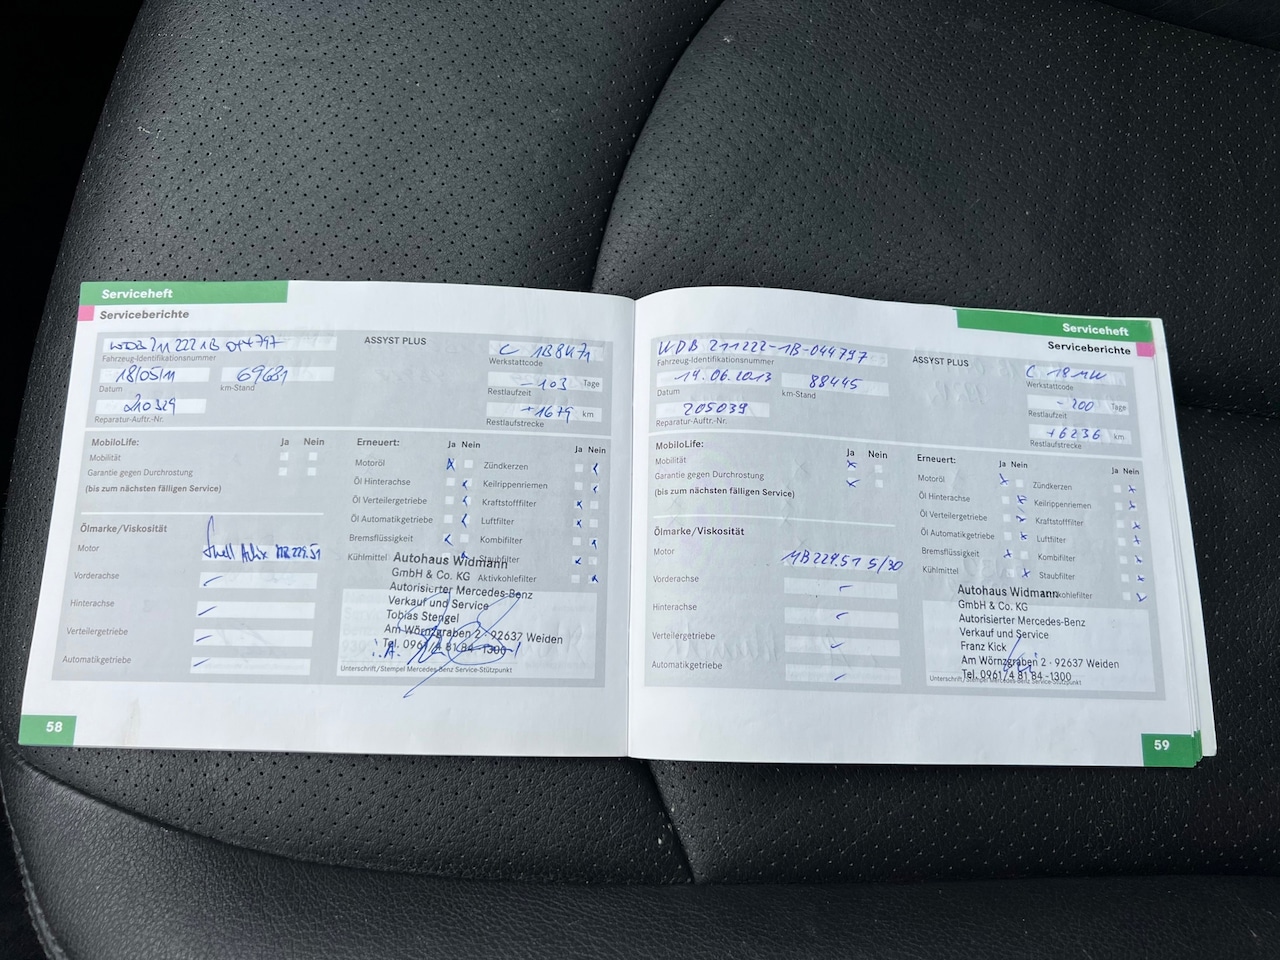 Serviceheft
Serviceberichte
WDB 211 222 1B 044797
Fahrzeug-Identifikationsnummer
ASSYST PLUS
C 1B8K71
Werkstattcode
18/05/11
69681
Datum
km-Stand
-103 Tage
Restlaufzeit
210329
Reparatur-Auftr.-Nr.
+1679 km
Restlaufstrecke
MobiloLife:
Ja Nein
Mobilität
Garantie gegen Durchrostung
(bis zum nächsten fälligen Service)
Erneuert:
Ja Nein
Ja Nein
Motoröl
Zündkerzen
Öl Hinterachse
Keilrippenriemen
Öl Verteilergetriebe
Kraftstofffilter
Öl Automatikgetriebe
Luftfilter
Bremsflüssigkeit
Kombifilter
Kühlmittel
Staubfilter
Aktivkohlefilter
Ölmarke/Viskosität
Motor
Shell MB 229.51
Vorderachse
Hinterachse
Verteilergetriebe
Automatikgetriebe
Autohaus Widmann
GmbH & Co. KG
Autorisierter Mercedes-Benz
Verkauf und Service
Tobias Stengel
Am Wörnzgraben 2 · 92637 Weiden
Tel. 0961/4 81 84 -1300
i.A.
Unterschrift/Stempel Mercedes-Benz Service-Stützpunkt
58
Serviceheft
Serviceberichte
WDB 211222-1B-044797
Fahrzeug-Identifikationsnummer
ASSYST PLUS
C 18
Werkstattcode
14.06.2013
88445
Datum
km-Stand
-200 Tage
Restlaufzeit
205039
Reparatur-Auftr.-Nr.
+6236 km
Restlaufstrecke
MobiloLife:
Ja Nein
Mobilität
Garantie gegen Durchrostung
(bis zum nächsten fälligen Service)
Erneuert:
Ja Nein
Ja Nein
Motoröl
Zündkerzen
Öl Hinterachse
Keilrippenriemen
Öl Verteilergetriebe
Kraftstofffilter
Öl Automatikgetriebe
Luftfilter
Bremsflüssigkeit
Kombifilter
Kühlmittel
Staubfilter
Aktivkohlefilter
Ölmarke/Viskosität
Motor
MB 229.51 5/30
Vorderachse
Hinterachse
Verteilergetriebe
Automatikgetriebe
Autohaus Widmann
GmbH & Co. KG
Autorisierter Mercedes-Benz
Verkauf und Service
Franz Kick
Am Wörnzgraben 2 · 92637 Weiden
Tel. 0961/4 81 84 -1300
Unterschrift/Stempel Mercedes-Benz Service-Stützpunkt
59